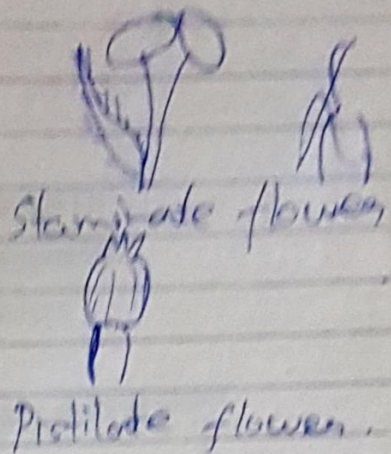 Staminade flower
Pistilade flower.